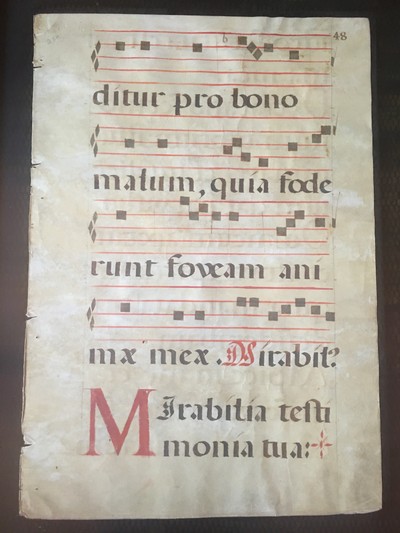 48
ditur pro bono
malum, quia fode
runt foveam ani
mæ meæ. Mirabil?
Mirabilia testi
monia tua: